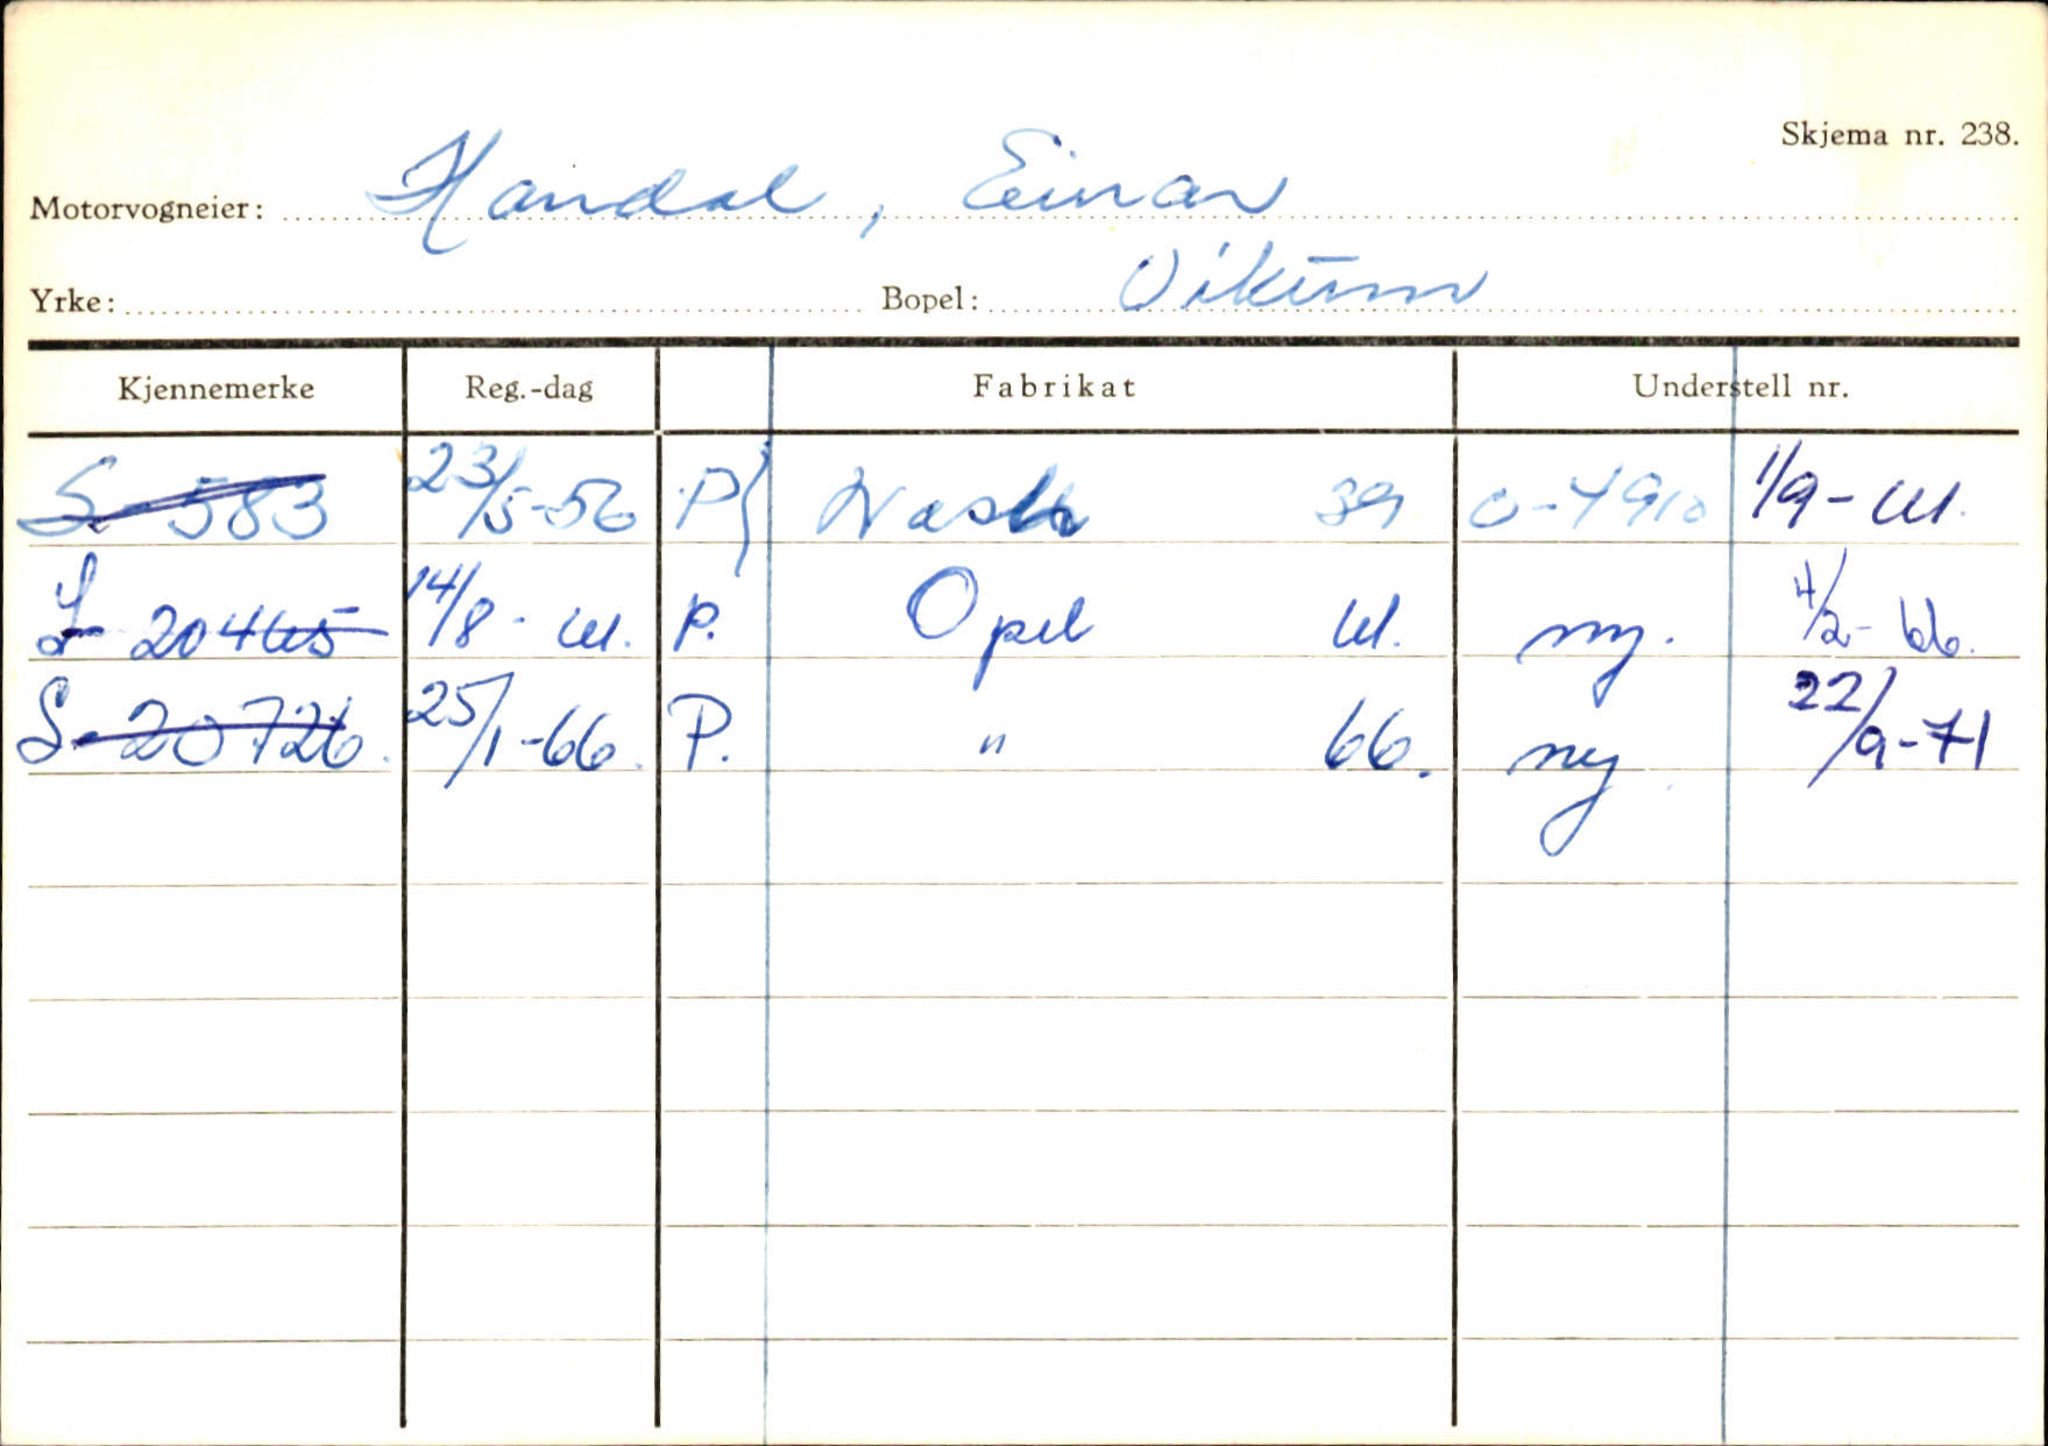 Skjema nr. 238.
Motorvogneier: Handal, Einar
Yrke: Bopel: Vikum
Kjennemerke Reg.-dag Fabrikat Understell nr.
S-583 23/5-56 P} Nash 39 0-4910 1/9-61.
S-20465 14/8-61. P. Opel 61. ny. 4/2-66.
S-20726. 25/1-66. P. " 66. ny 22/9-71